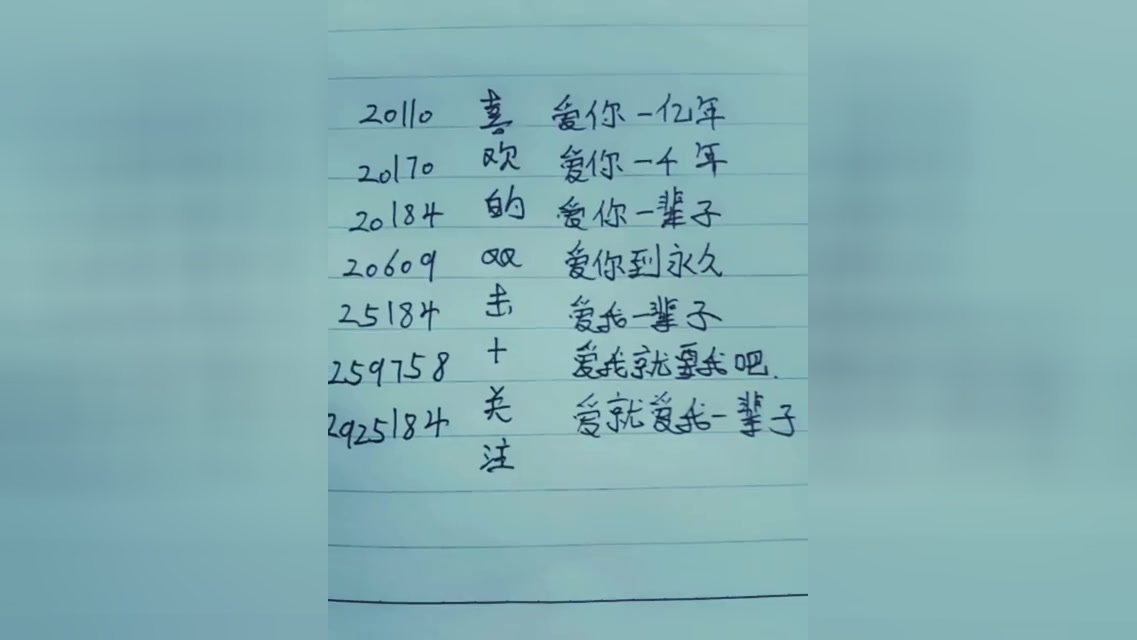 20110 喜 爱你一亿年
20170 欢 爱你一千年
20184 的 爱你一辈子
20609 QQ 爱你到永久
25184 击 爱我一辈子
259758 + 爱我就要我吧.
2925184 关 爱就爱我一辈子
注